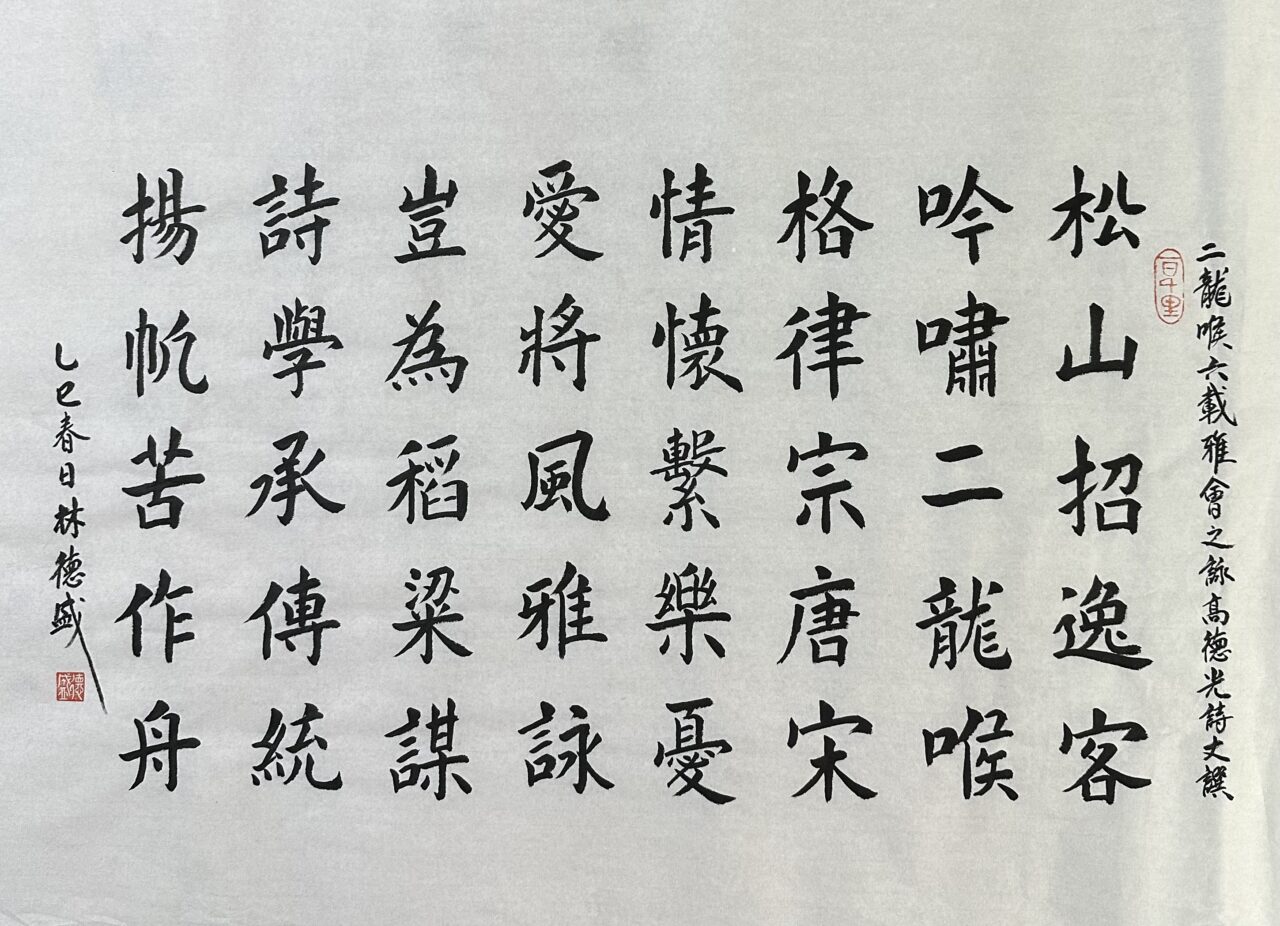 二龍喉六載雅會之詠高德光詩丈譔
松山招逸客
吟嘯二龍喉
格律宗唐宋
情懷繫樂憂
愛將風雅詠
豈為稻粱謀
詩學承傳統
揚帆苦作舟
乙巳春日林德盛
德盛